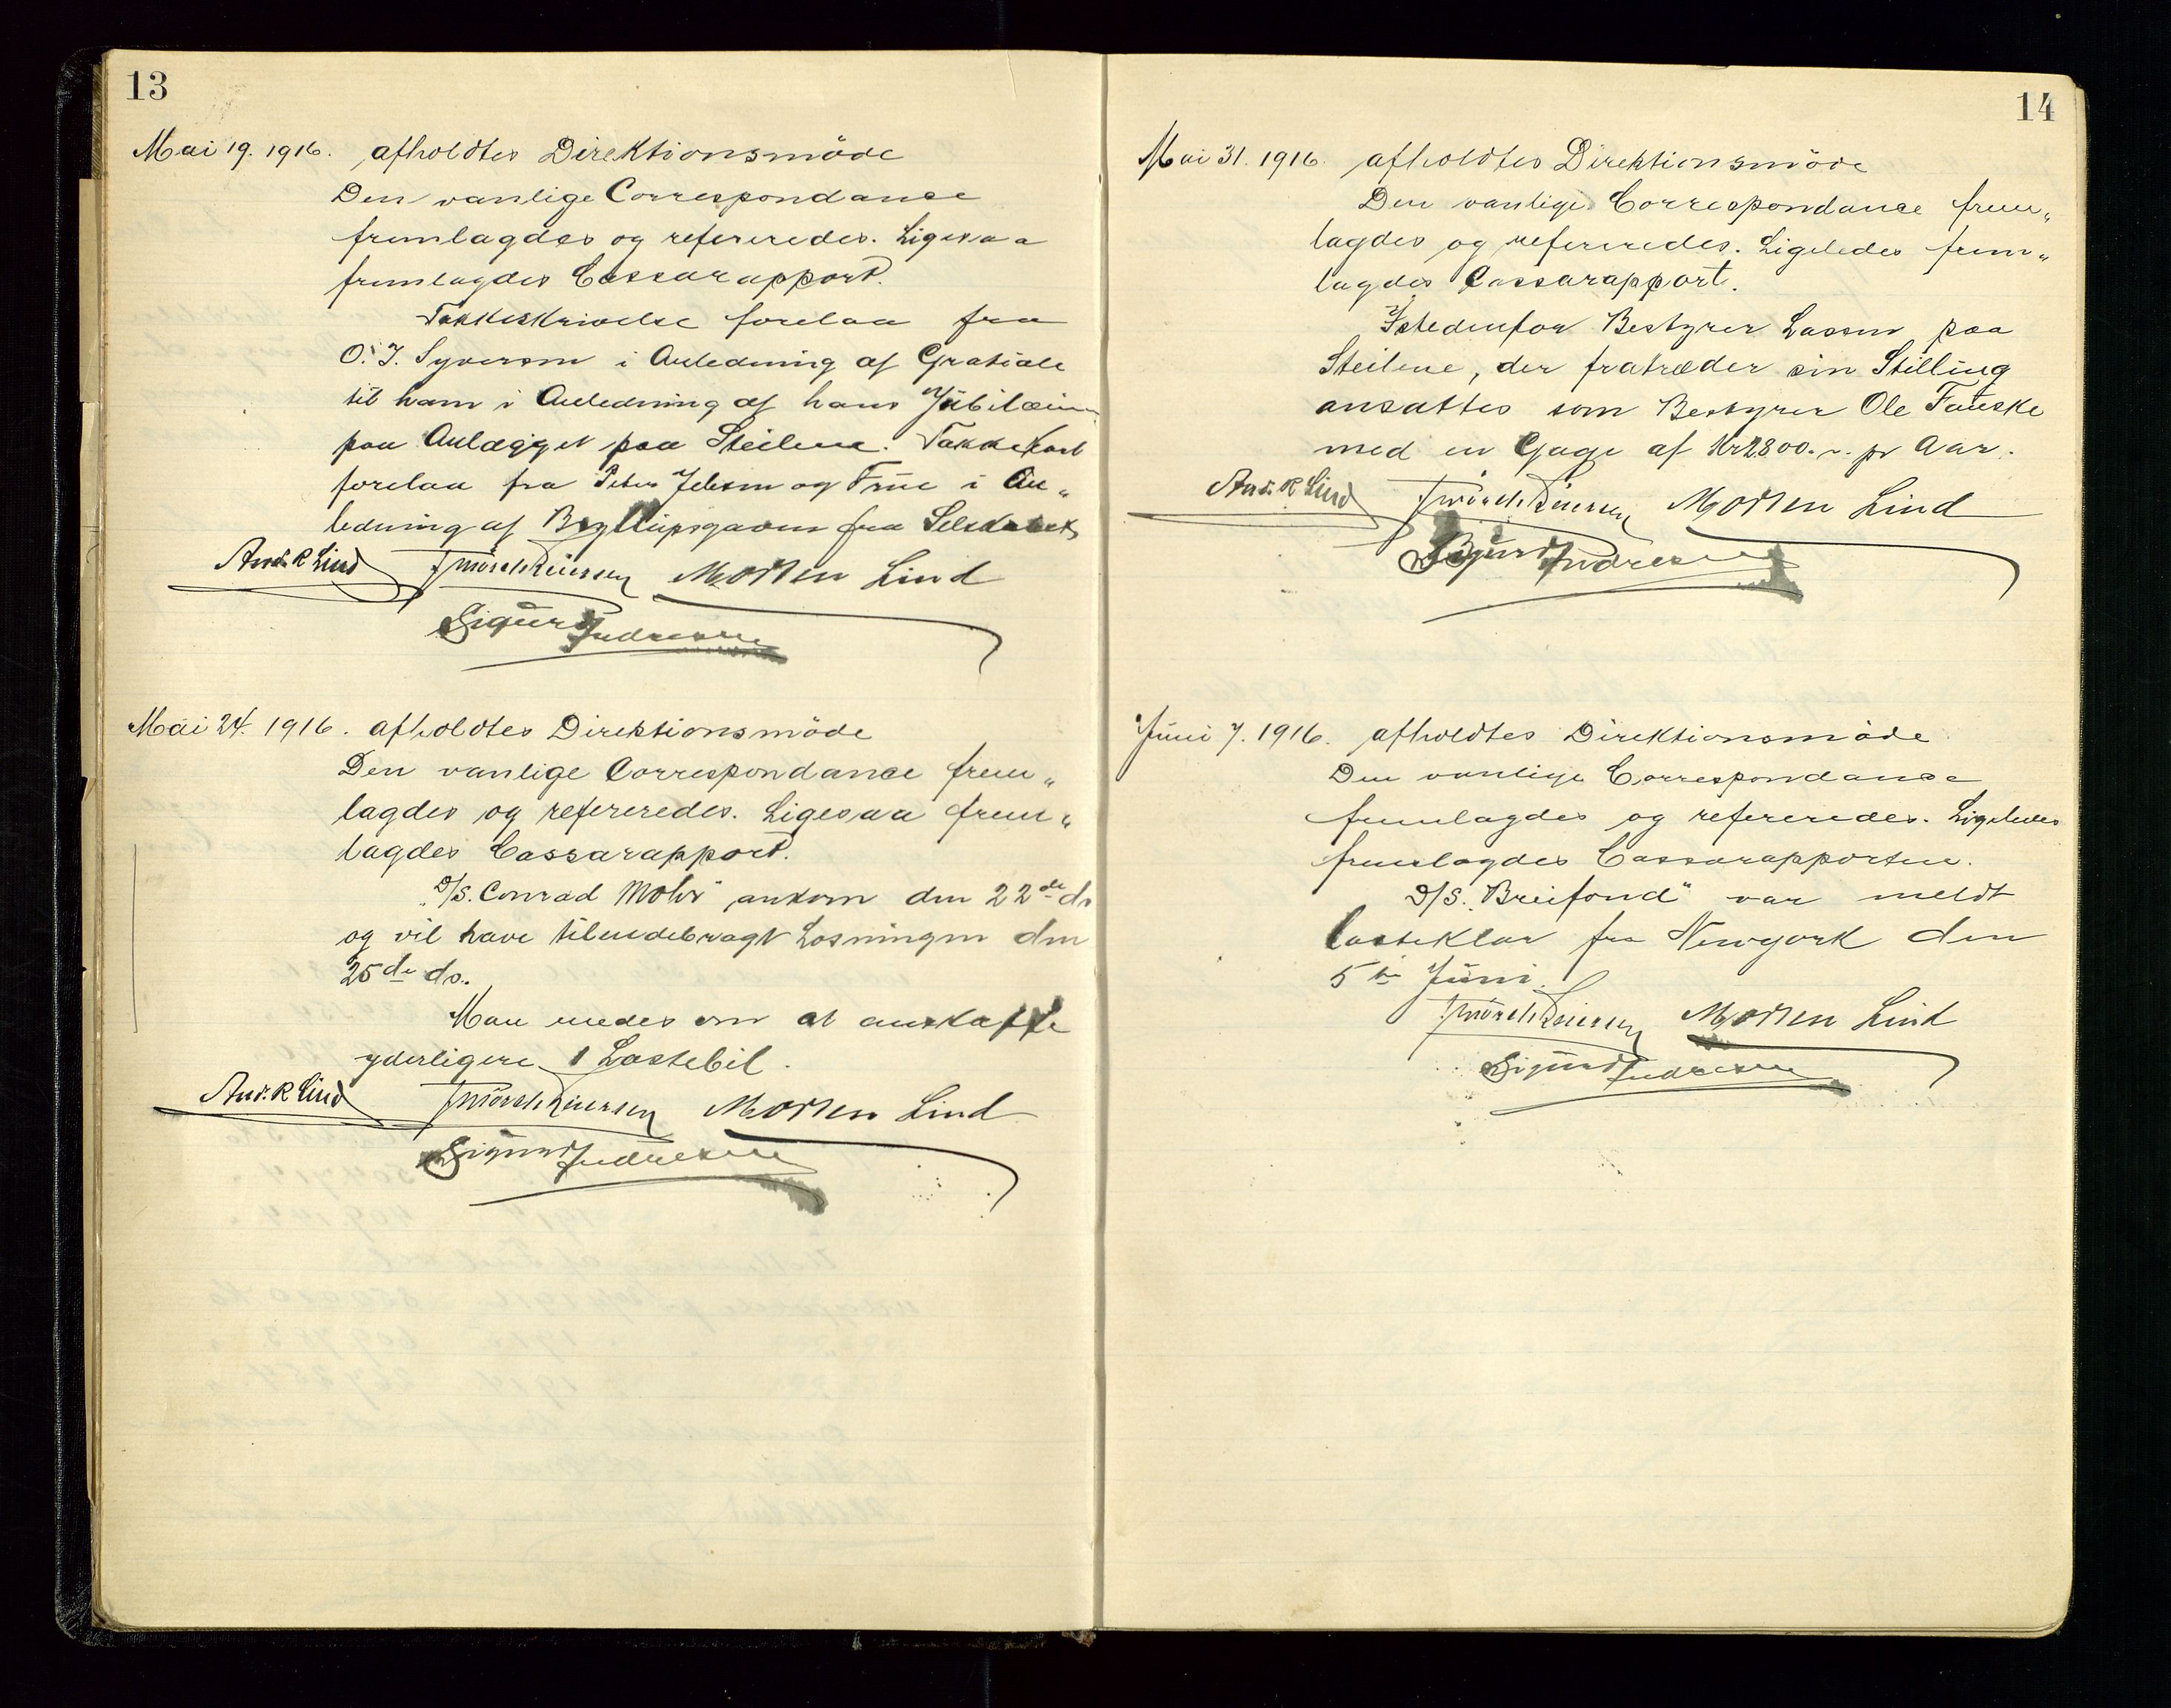 13
Mai 19. 1916. afholdtes Direktionsmöde
Den vanlige Correspondance
fremlagdes og refereredes. Ligesaa
fremlagdes Cassarapport.
Takkeskrivelse forelaa fra
O. J. Syversen i Anledning af Gratiale
til ham i Anledning af hans Jubilæum
paa Anlægget paa Steilene. Takkekort
forelaa fra Peter Jebsen og Frue i An„
ledning af Bryllupsgaven fra Selskabet
And. R Lind Morten Lind
Sigurd Andresen
Mai 24. 1916. afholdtes Direktionsmöde
Den vanlige Correspondance frem„
lagdes og refereredes. Ligesaa frem„
lagdes Cassarapport.
"D/S. Conrad Mohr" ankom den 22de ds
og vil have tilendebragt Losningen den
25de ds.
Man enedes om at anskaffe
yderligere 1 Lastebil.
And. R Lind Morten Lind
Sigurd Andresen
14
Mai 31. 1916. afholdtes Direktionsmöde
Den vanlige Correspondance frem„
lagdes og refereredes. Ligeledes frem„
lagdes Cassarapport.
Istedenfor Bestyrer Lassen paa
Steilene, der fratræder sin Stilling
ansattes som Bestyrer Ole Fauske
med en Gage af Kr 2800.-. pr Aar.
And. R Lind Morten Lind
Sigurd Andresen
Juni 7. 1916. afholdtes Direktionsmöde
Den vanlige Correspondance
fremlagdes og refereredes. Ligeledes
fremlagdes Cassarapporten.
D/S. "Breifond" var meldt
lasteklar fra Newyork den
5te Juni.
Morten Lind
Sigurd Andresen